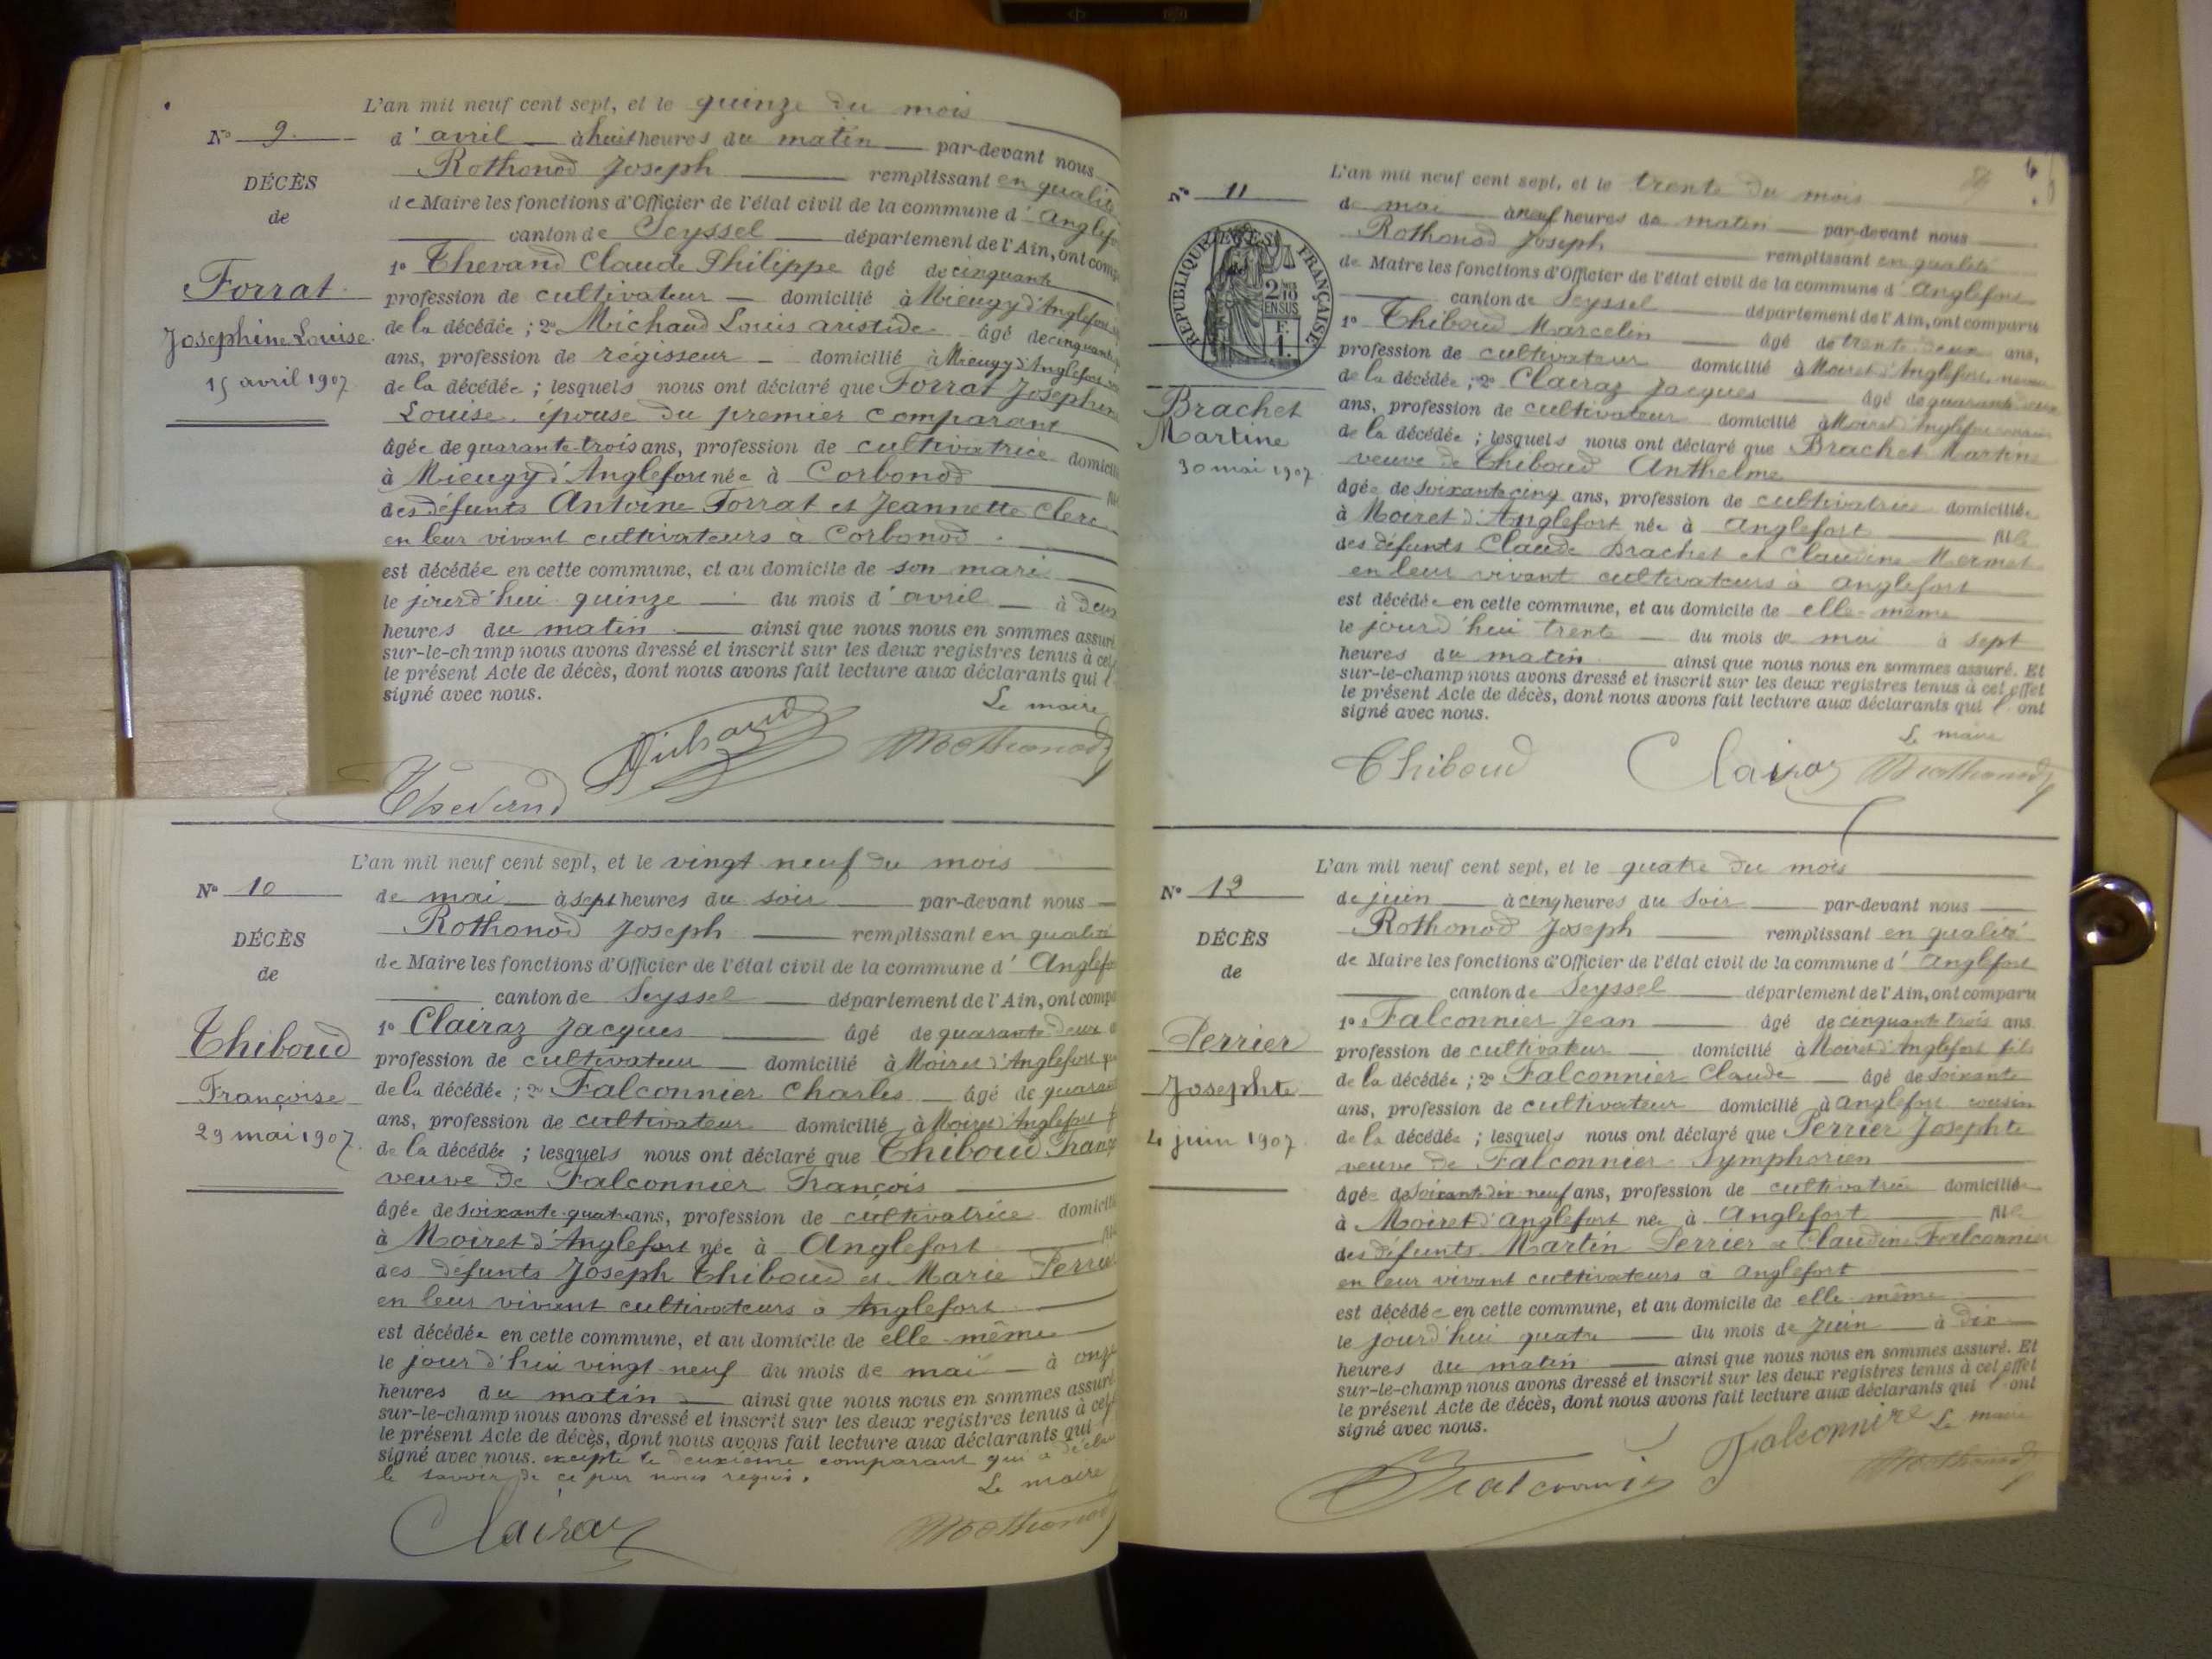 L'an mil neuf cent sept, et le quinze du mois
N° 9.
d'avril à huit heures du matin par-devant nous
Rothonod Joseph remplissant en qualité
DÉCÈS
de Maire les fonctions d'Officier de l'état civil de la commune d'Anglef
de
canton de Seyssel département de l'Ain, ont comp
1° Thevand Claude Philippe âgé de cinquante
Forrat
profession de cultivateur domicilié à Mieugy d'Anglefort
Josephine Louise
de la décédée ; 2° Michaud Louis aristide âgé de cinquante
ans, profession de régisseur domicilié à Mieugy d'Anglefort
15 avril 1907
de la décédée ; lesquels nous ont déclaré que Forrat Josephine
Louise, épouse du premier comparant
âgée de quarante-trois ans, profession de cultivatrice domicili
à Mieugy d'Anglefort née à Corbonod
des défunts Antoine Forrat et Jeannette Clerc
en leur vivant cultivateurs à Corbonod
est décédée en cette commune, et au domicile de son mari
le jourd'hui quinze du mois d'avril à deux
heures du matin ainsi que nous nous en sommes assuré
sur-le-champ nous avons dressé et inscrit sur les deux registres tenus à cet
le présent Acte de décès, dont nous avons fait lecture aux déclarants qui l'
signé avec nous.
Le maire
Michaud Rothonod
Thevand
L'an mil neuf cent sept, et le vingt-neuf du mois
N° 10
de mai à sept heures du soir par-devant nous
Rothonod Joseph remplissant en qualité
DÉCÈS
de Maire les fonctions d'Officier de l'état civil de la commune d'Anglefo
de
canton de Seyssel département de l'Ain, ont compa
1° Clairaz Jacques âgé de quarante-deux a
Thiboud
profession de cultivateur domicilié à Moiret d'Anglefort
Françoise
de la décédée ; 2° Falconnier Charles âgé de quaran
ans, profession de cultivateur domicilié à Moiret d'Anglefort
29 mai 1907.
de la décédée ; lesquels nous ont déclaré que Thiboud Franç
veuve de Falconnier François
âgée de soixante-quatre ans, profession de cultivatrice domicili
à Moiret d'Anglefort née à Anglefort
des défunts Joseph Thiboud et Marie Perrier
en leur vivant cultivateurs à Anglefort
est décédée en cette commune, et au domicile de elle-même
le jourd'hui vingt-neuf du mois de mai à onze
heures du matin ainsi que nous nous en sommes assuré
sur-le-champ nous avons dressé et inscrit sur les deux registres tenus à cet
le présent Acte de décès, dont nous avons fait lecture aux déclarants qui
signé avec nous. excepté le deuxième comparant qui a déclar
le savoir de ce par nous requis.
Le maire
Clairaz Rothonod
L'an mil neuf cent sept, et le trente du mois
N° 11
de mai à neuf heures du matin par-devant nous
Rothonod Joseph remplissant en qualité
RÉPUBLIQUE FRANÇAISE
2/10 EN SUS
F. 1.
de Maire les fonctions d'Officier de l'état civil de la commune d'Anglefort
canton de Seyssel département de l'Ain, ont comparu
1° Thiboud Marcelin âgé de trente-deux ans,
profession de cultivateur domicilié à Moiret d'Anglefort neveu
de la décédée ; 2° Clairaz Jacques âgé de quarante-deux
Brachet
ans, profession de cultivateur domicilié à Moiret d'Anglefort cousin
Martine
de la décédée ; lesquels nous ont déclaré que Brachet Martine
30 mai 1907.
veuve de Thiboud Anthelme
âgée de soixante cinq ans, profession de cultivatrice domiciliée
à Moiret d'Anglefort née à Anglefort fille
des défunts Claude Brachet et Claudine Mermet
en leur vivant cultivateurs à Anglefort
est décédée en cette commune, et au domicile de elle-même
le jourd'hui trente du mois de mai à sept
heures du matin ainsi que nous nous en sommes assuré. Et
sur-le-champ nous avons dressé et inscrit sur les deux registres tenus à cet effet
le présent Acte de décès, dont nous avons fait lecture aux déclarants qui l'ont
signé avec nous.
Le maire
Thiboud Clairaz Rothonod
L'an mil neuf cent sept, et le quatre du mois
N° 12
de juin à cinq heures du soir par-devant nous
Rothonod Joseph remplissant en qualité
DÉCÈS
de Maire les fonctions d'Officier de l'état civil de la commune d'Anglefort
de
canton de Seyssel département de l'Ain, ont comparu
1° Falconnier Jean âgé de cinquante trois ans
Perrier
profession de cultivateur domicilié à Moiret d'Anglefort fils
Josephte
de la décédée ; 2° Falconnier Claude âgé de soixante
ans, profession de cultivateur domicilié à Anglefort cousin
4 juin 1907.
de la décédée ; lesquels nous ont déclaré que Perrier Josephte
veuve de Falconnier Symphorien
âgée de soixante dix-neuf ans, profession de cultivatrice domiciliée
à Moiret d'Anglefort née à Anglefort fille
des défunts Martin Perrier et Claudine Falconnier
en leur vivant cultivateurs à Anglefort
est décédée en cette commune, et au domicile de elle-même
le jourd'hui quatre du mois de juin à dix
heures du matin ainsi que nous nous en sommes assuré. Et
sur-le-champ nous avons dressé et inscrit sur les deux registres tenus à cet effet
le présent Acte de décès, dont nous avons fait lecture aux déclarants qui l'ont
signé avec nous.
Le maire
Falconnier Falconnire Rothonod